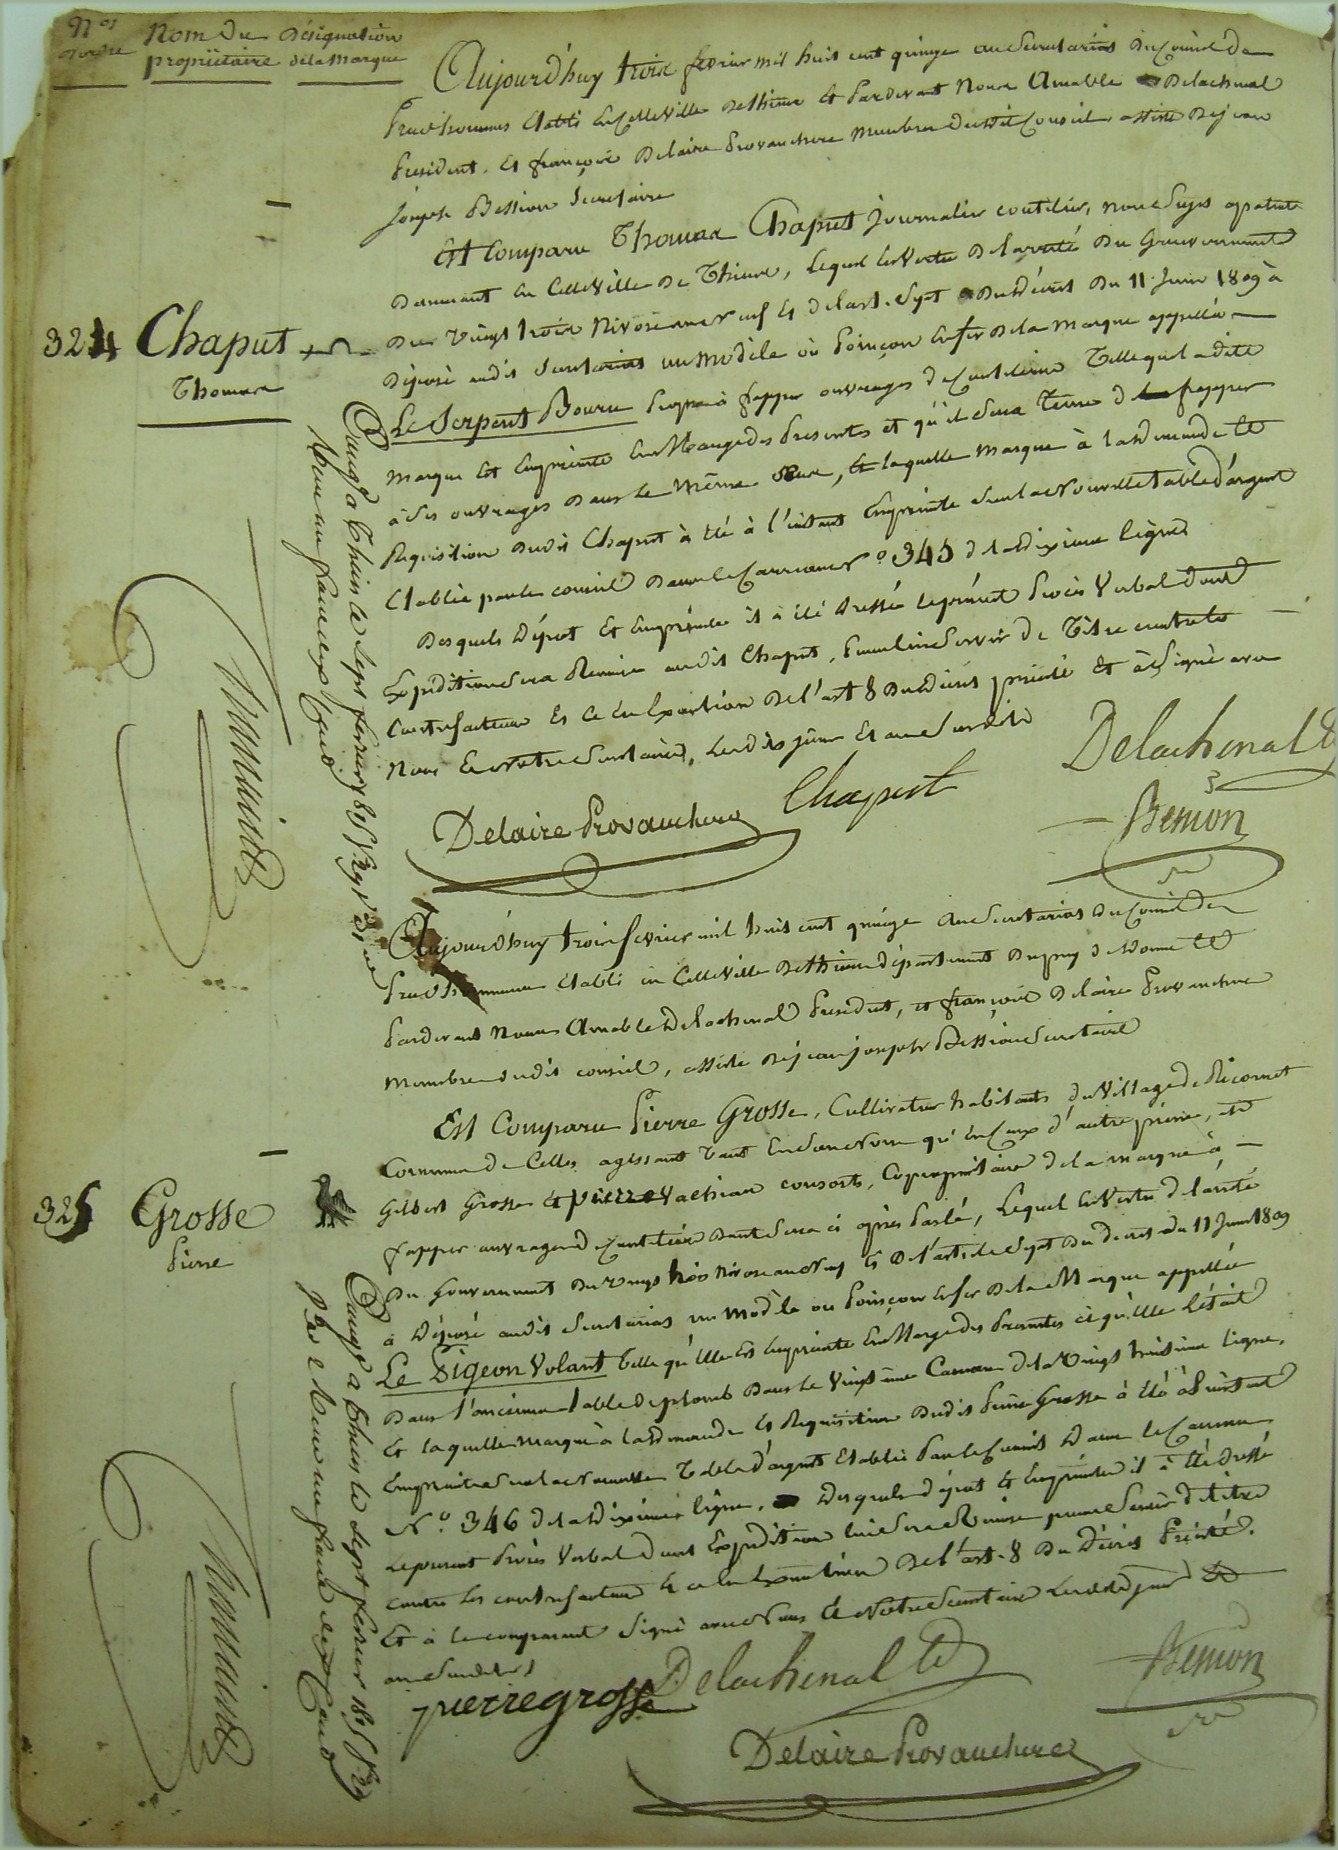 Nos Nom du Désignation
d'ordre propriétaire de la Marque
Aujourd'huy trois fevrier mil huit cent quinze au Secretariat du Conseil de
Prud'hommes établi en Celle Ville de Thiers et Pardevant Nous Amable Delachenal
President, et françois Delaire Provanchere Membres dudit Conseil assisté de jean
joseph Bession Secretaire
Est Comparu Thomas Chaput journalier coutelier, non Sujet a patente
Demeurant en Celle Ville de Thiers, lequel en Vertu de l'arrêté du Gouvernement
du vingt trois Nivose an neuf et de l'art. Sept du Décret du 11 Juin 1809 à
Déposé audit Secretariat un Modèle où Poinçon en fer de la Marque appellée
324 Chaput
Thomas
Le Serpent Bouru Propre à frapper ouvrages de Coutellerie Telle que ladite
Marque est Empreinte En Marge des Presentes et qu'il Sera Tenu de frapper
à Ses ouvrages Dans le Même Sens, et laquelle Marque à la demande et
Requisition dudit Chaput à été à l'instant Empreinte Sur la Nouvelle Table d'argent
Etablie par le conseil Dans le Carreau N° 345 de la dixieme ligne
Desquels Dépot et Empreinte il à été Dressé le présent Procès Verbal dont
Expedition Sera Remise audit Chaput, Pour lui Servir de Titre contre les
Contrefacteurs et ce en Exécution de l'art 8 du décret précité et à Signé avec
Nous et notre Secretaire, lesdits jour et an Susdits
Delachenal
Chaput
Delaire Provanchere
Bession
Enregé a Thiers le sept fevrier 1815
Reçu un franc dix Cent
Aujourd'huy trois fevrier mil huit cent quinze au Secretariat du Conseil de
Prud'hommes établi en Celle Ville de Thiers département du puy de Dome et
Pardevant Nous Amable Delachenal President, et françois Delaire Provanchere
Membres dudit conseil, assisté de jean joseph Bession Secretaire
Est Comparu Pierre Grosse, Cultivateur habitant du Village de
Commune de Celles agissant tant en Son Nom qu'en Ceux d'autre pierre, et
Gilbert Grosse et pierre consorts, Copropriétaire de la marque à
325 Grosse
Pierre
frapper ouvrages de Coutellerie dont Sera ci après Parlé, Lequel en Vertu de l'arrêté
du Gouvernement du vingt trois Nivose an neuf et de l'article Sept du decret du 11 Juin 1809
à Déposé audit Secretariat un Modèle ou Poinçon en fer de la Marque appellée
Le Pigeon Volant Telle qu'elle Est Empreinte En Marge des Presentes et qu'elle l'était
Dans l'ancienne table de plomb Dans le Vingt Carreau de la Vingt huitieme ligne,
Et laquelle marque à la demande et Requisition dudit Pierre Grosse à été à l'instant
Empreinte Sur la Nouvelle Table d'argent Etablie Par le Conseil Dans le Carreau
N° 346 de la dixieme ligne. Desquels dépot et Empreinte il à été dressé
Le present Procès Verbal dont Expedition lui Sera Remise pour Servir de titre
contre les contrefacteurs et ce en Exécution de l'art. 8 Du Décret Précité.
Et à le comparant Signé avec Nous et Notre Secretaire lesdits jour et
an Susdits
pierre grosse
Delachenal
Bession
Delaire Provanchere
Enregé a Thiers le sept fevrier 1815
Reçu un franc dix Cent